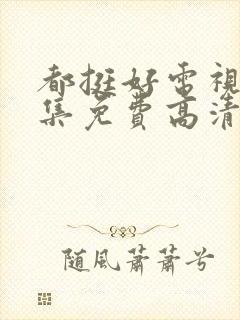 都挺好电視
集免費高清
随風蕭蕭兮